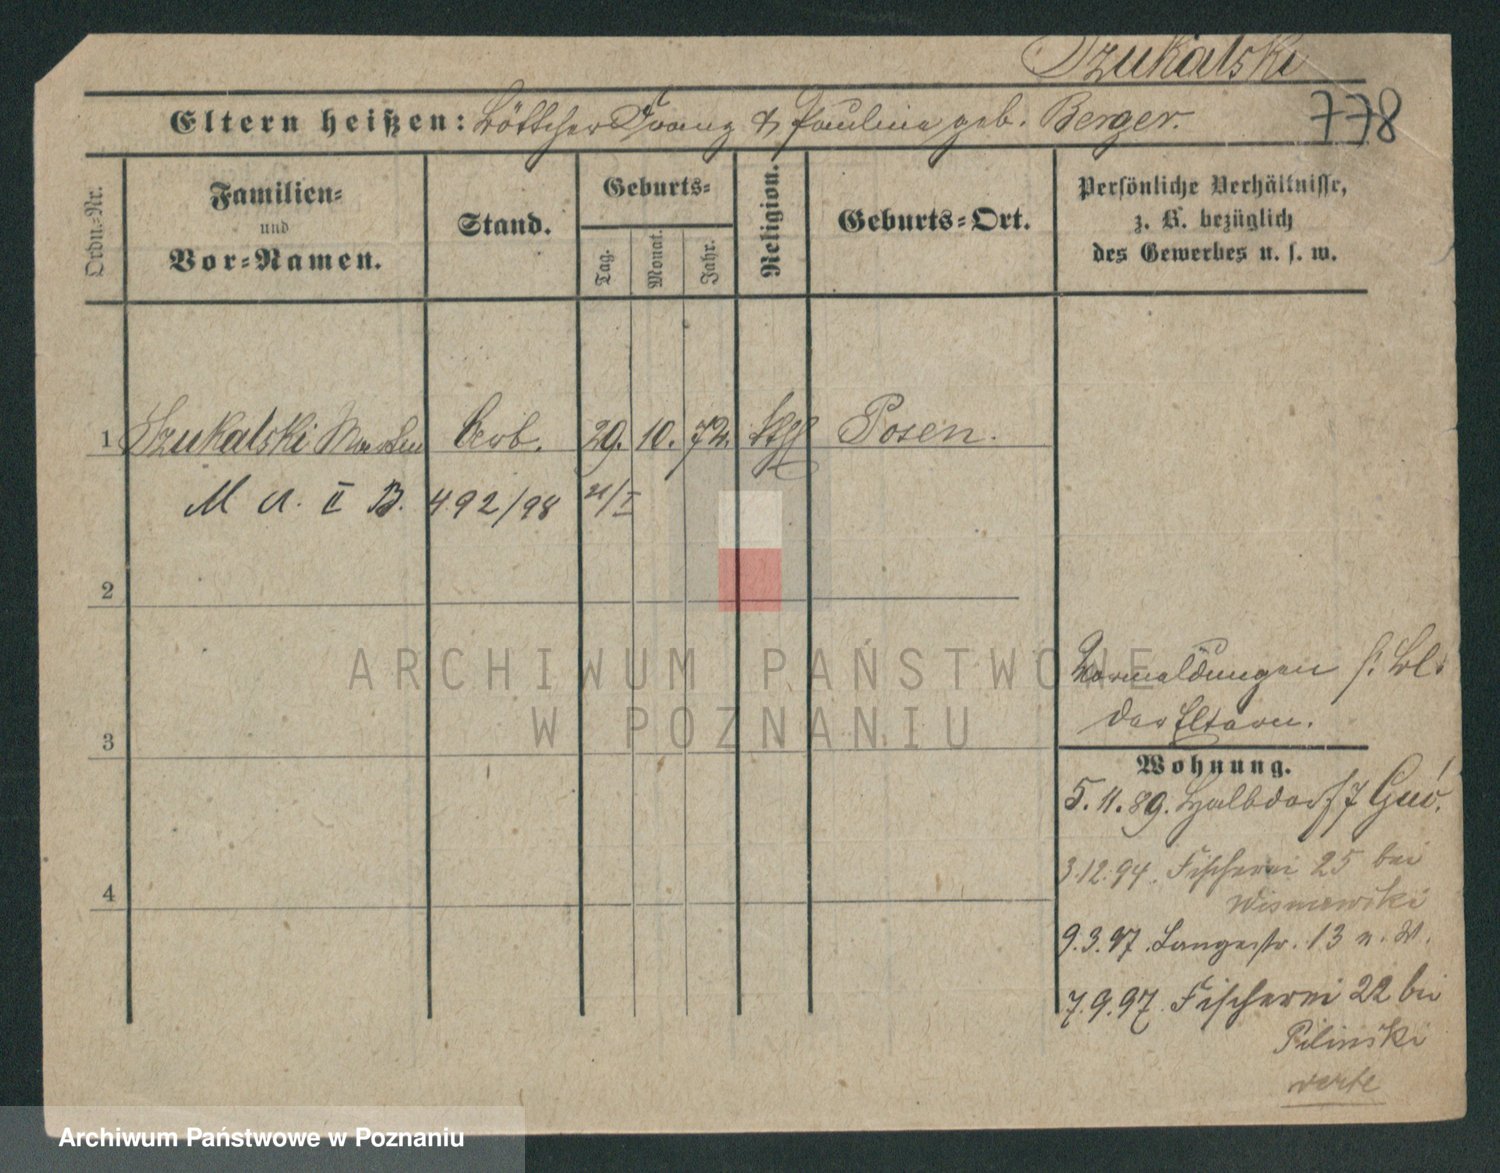 Szukalski
778
Eltern heißen: Böttcher Franz & Pauline geb. Berger.
Ordn.=Nr.
Familien=
und
Vor=Namen.
Stand.
Geburts=
Tag.
Monat.
Jahr.
Religion.
Geburts=Ort.
Persönliche Verhältnisse,
z. B. bezüglich
des Gewerbes u. s. w.
1 Szukalski Arb. 29. 10. 72. Posen.
M A. II B. 492/98 21/I
2
3
4
Vormeldungen s. Bl.
der Eltern.
Wohnung.
5.11.89. Halbdorf 7
3.12.94. Fischerei 25 bei
Wisniewski
9.3.97. Langestr. 13 n. W.
7.9.97. Fischerei 22 bei
Pilinski
werte
ARCHIWUM PAŃSTWOWE
W POZNANIU
Archiwum Państwowe w Poznaniu